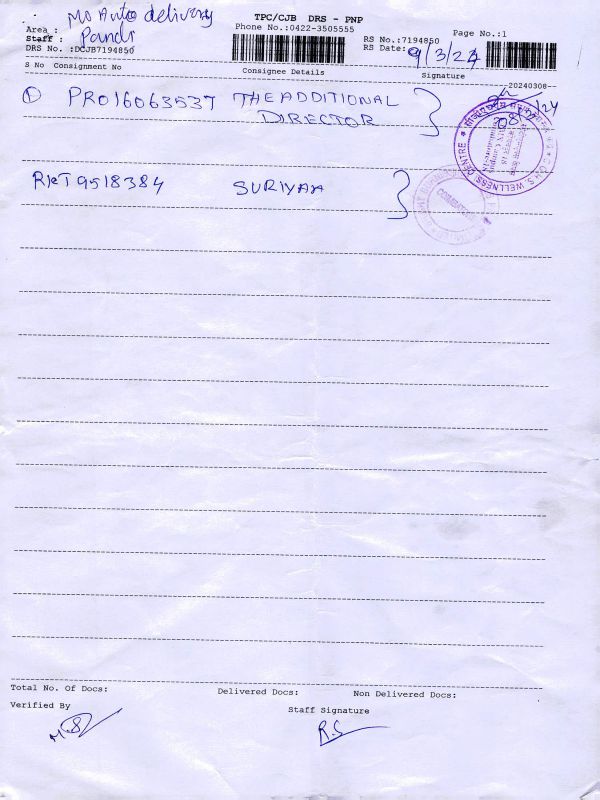 Mo Auto delivery
TPC/CJB DRS - PNP
Area :
Phone No.:0422-3505555
RS No.:7194850
Page No.:1
Staff : Pandi
RS Date: 9/3/24
DRS No. :DCJB7194850
S No Consignment No
Consignee Details
Signature
-20240308-
① PRO16063537 THE ADDITIONAL
DIRECTOR
08/3/24
WELLNESS CENTRE
RKT9518384 SURIYAA
COIMBATORE
Total No. Of Docs:
Delivered Docs:
Non Delivered Docs:
Verified By
Staff Signature
M.S
R.S